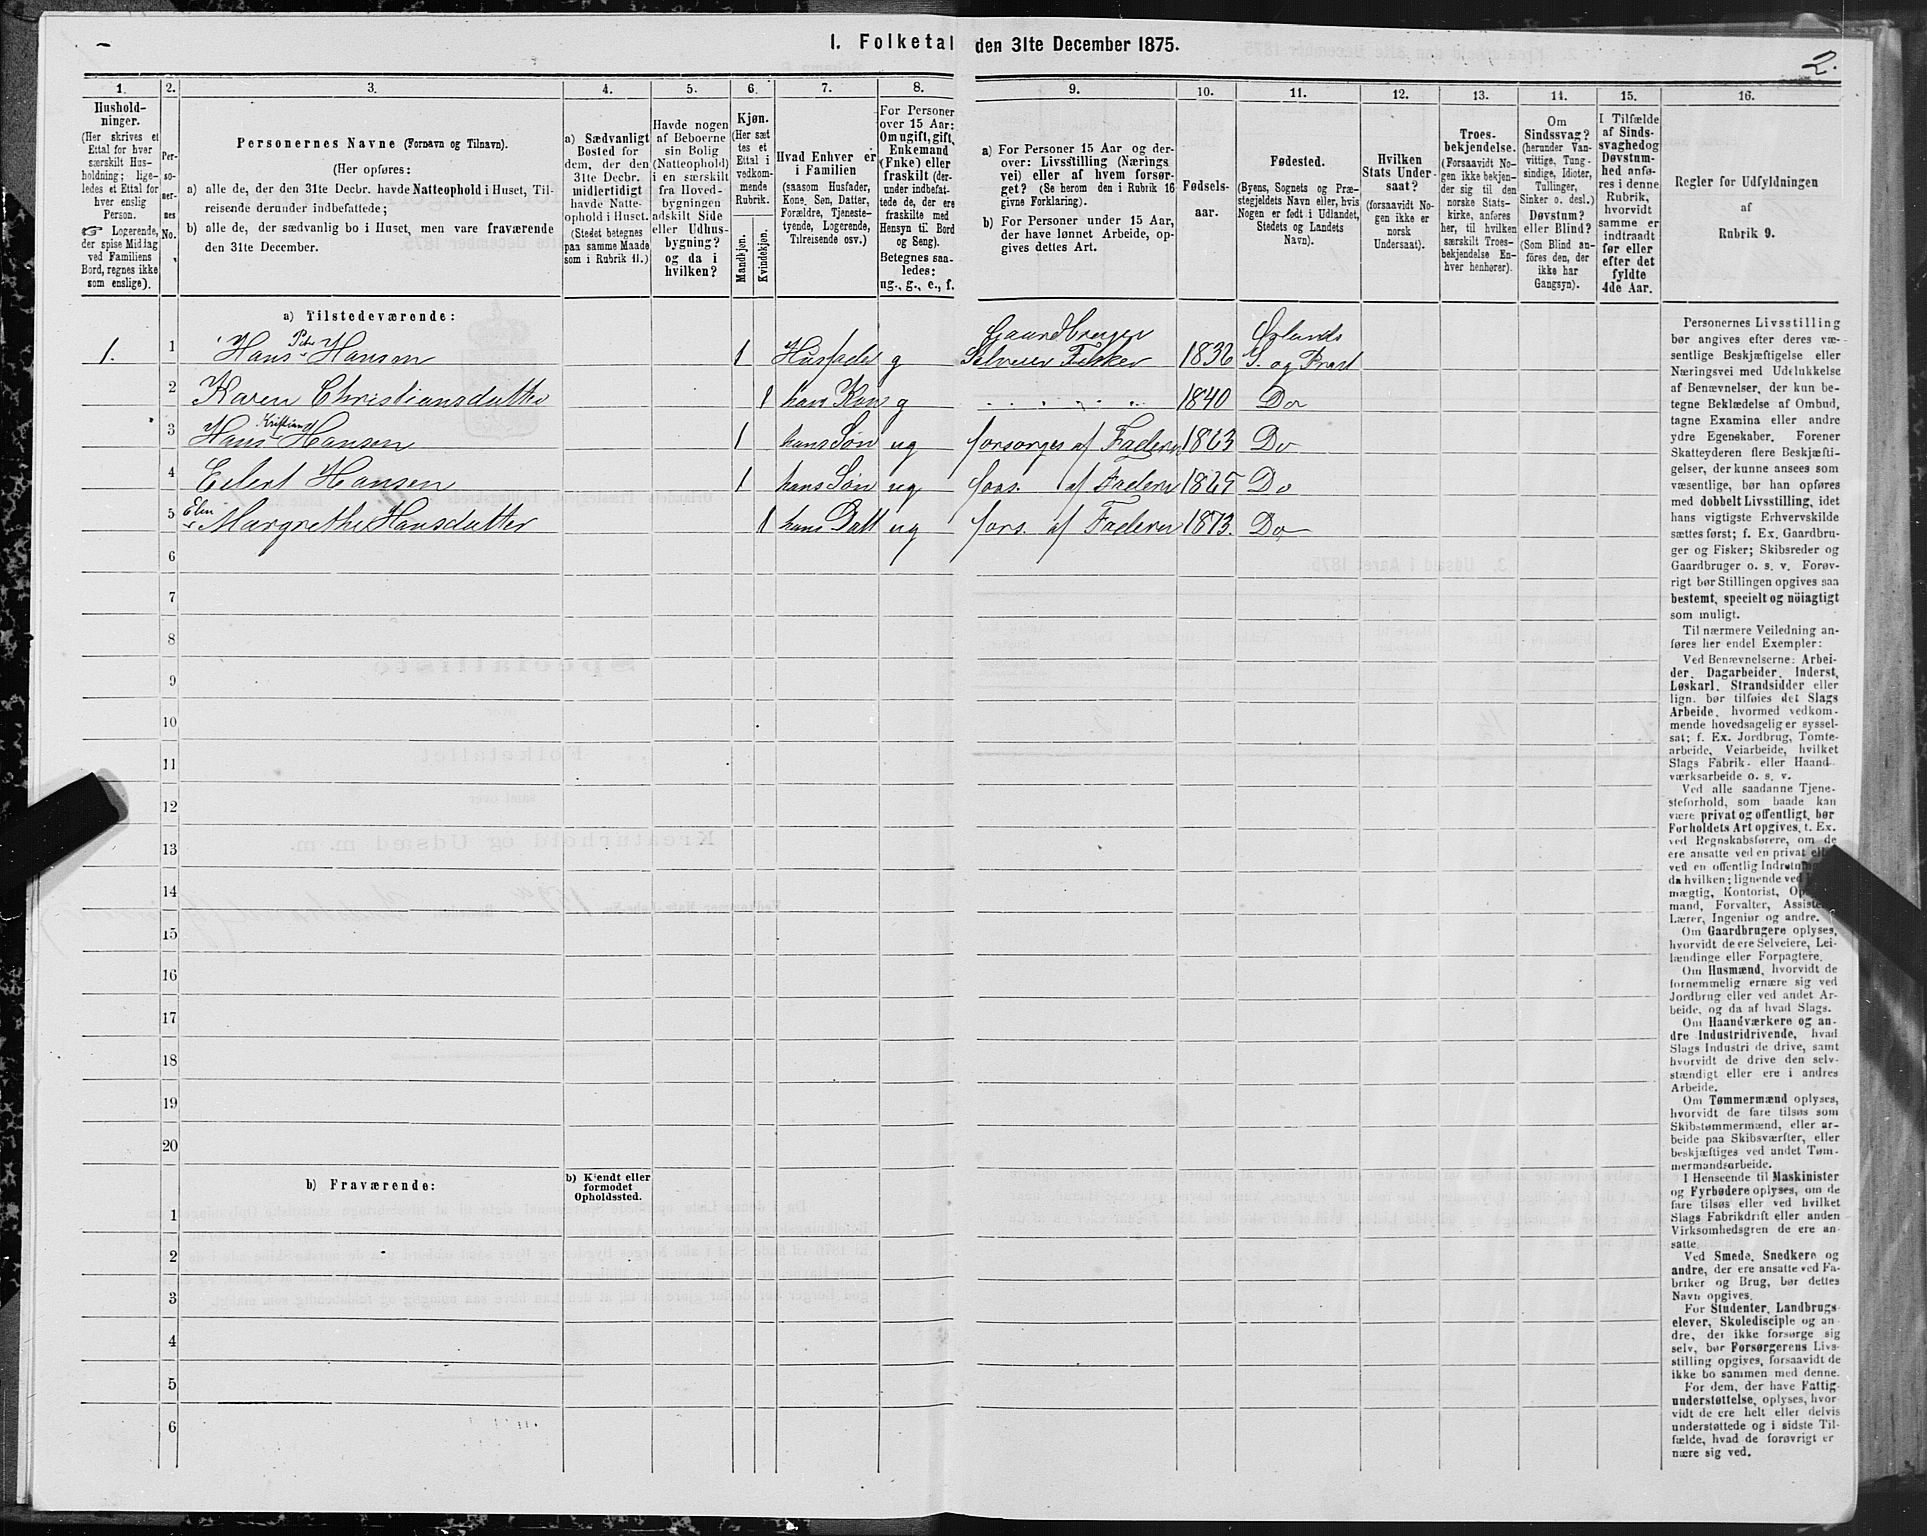 I. Folketal den 31te December 1875.
2.
1.
Hushold-
ninger.
(Her skrives et
Ettal for hver
særskilt Hus-
holdning; lige-
ledes et Ettal for
hver enslig
Person.
☞ Logerende,
der spise Middag
ved Familiens
Bord, regnes ikke
som enslige).
2.
Per-
so-
ner-
nes
No.
3.
Personernes Navne (Fornavn og Tilnavn).
(Her opføres:
a) alle de, der den 31te Decbr. havde Natteophold i Huset, Til-
reisende derunder indbefattede;
b) alle de, der sædvanlig bo i Huset, men vare fraværende
den 31te December.
4.
a) Sædvanligt
Bosted for
dem, der den
31te Decbr.
midlertidigt
havde Natte-
ophold i Huset.
(Stedet betegnes
paa samme Maade
som i Rubrik 11.)
5.
Havde nogen
af Beboerne
sin Bolig
(Natteophold)
i en særskilt
fra Hoved-
bygningen
adskilt Side
eller Udhus-
bygning?
og da i
hvilken?
6.
Kjøn.
(Her sæt-
tes et
Ettal i
vedkom-
mende
Rubrik.
Mandkjøn.
Kvindekjøn.
7.
Hvad Enhver er
i Familien
(saasom Husfader,
Kone, Søn, Datter,
Forældre, Tjeneste-
tyende, Logerende,
Tilreisende osv.)
8.
For Personer
over 15 Aar:
Om ugift, gift,
Enkemand
(Enke) eller
fraskilt (der-
under indbefat-
tede de, der ere
fraskilte med
Hensyn til Bord
og Seng).
Betegnes saa-
ledes:
ug., g., e., f.
9.
a) For Personer 15 Aar og der-
over: Livsstilling (Nærings-
vei) eller af hvem forsør-
get? (Se herom den i Rubrik 16
givne Forklaring).
b) For Personer under 15 Aar,
der have lønnet Arbeide, op-
gives dettes Art.
10.
Fødsels-
aar.
11.
Fødested.
(Byens, Sognets og Præ-
stegjeldets Navn eller, hvis
Nogen er født i Udlandet,
Stedets og Landets
Navn).
12.
Hvilken
Stats Under-
saat?
(forsaavidt No-
gen ikke er
norsk
Undersaat).
13.
Troes-
bekjendelse.
(Forsaavidt No-
gen ikke bekjen-
der sig til den
norske Stats-
kirke, anføres
her, til hvilken
særskilt Troes-
bekjendelse En-
hver henhører).
14.
Om
Sindssvag?
(herunder Van-
vittige, Tung-
sindige, Idioter,
Tullinger,
Sinker o. desl.)
Døvstum?
eller Blind?
(Som Blind an-
føres den, der
ikke har
Gangsyn).
15.
I Tilfælde
af Sinds-
svaghed og
Døvstum-
hed anfø-
res i denne
Rubrik,
hvorvidt
samme er
indtraadt
før eller
efter det
fyldte
4de Aar.
16.
Regler for Udfyldningen
af
Rubrik 9.
a) Tilstedeværende:
1. 1 Hans Peter Hansen 1 Husfader g Gaardbruger Selveier Fisker 1836 Ørlands S. og Præst
2 Karen Christiansdatter 1 hans Kone g 1840 Do
3 Hans Kristian Hansen 1 hans Søn ug forsørges af Faderen 1863 Do
4 Eilert Hansen 1 hans Søn ug fors. af Faderen 1865 Do
5 Elen Margrethe Hansdatter 1 hans Datt ug fors. af Faderen 1873. Do
6
7
8
9
10
11
12
13
14
15
16
17
18
19
20
b) Fraværende:
b) Kjendt eller
formodet
Opholdssted.
1
2
3
4
5
6
Personernes Livsstilling
bør angives efter deres væ-
sentlige Beskjæftigelse eller
Næringsvei med Udelukkelse
af Benævnelser, der kun be-
tegne Beklædelse af Ombud,
tagne Examina eller andre
ydre Egenskaber. Forener
Skatteyderen flere Beskjæfti-
gelser, der kunne ansees som
væsentlige, bør han opføres
med dobbelt Livsstilling, idet
hans vigtigste Erhvervskilde
sættes først; f. Ex. Gaardbru-
ger og Fisker; Skibsreder og
Gaardbruger o. s. v. Forøv-
rigt bør Stillingen opgives saa
bestemt, specielt og nöiagtigt
som muligt.
Til nærmere Veiledning an-
føres her endel Exempler:
Ved Benævnelserne: Arbei-
der, Dagarbeider, Inderst,
Løskarl, Strandsidder eller
lign. bør tilføies det Slags
Arbeide, hvormed vedkom-
mende hovedsagelig er syssel-
sat; f. Ex. Jordbrug, Tomte-
arbeide, Veiarbeide, hvilket
Slags Fabrik- eller Haand-
værksarbeide o. s. v.
Ved alle saadanne Tjene-
steforhold, som baade kan
være privat og offentligt, bør
Forholdets Art opgives, t. Ex.
ved Regnskabsførere, om de
ere ansatte ved en privat eller
ved en offentlig Indretning
da hvilken; lignende ved
mægtig, Kontorist, Op
mand, Forvalter, Assistent,
Lærer, Ingeniør og andre.
Om Gaardbrugere oplyses,
hvorvidt de ere Selveiere, Lei-
lændinge eller Forpagtere.
Om Husmænd, hvorvidt de
fornemmelig ernære sig ved
Jordbrug eller ved andet Ar-
beide, og da af hvad Slags.
Om Haandværkere og an-
dre Industridrivende, hvad
Slags Industri de drive, samt
hvorvidt de drive den selv-
stændigt eller ere i andres
Arbeide.
Om Tømmermænd oplyses,
hvorvidt de fare tilsøs som
Skibstømmermænd, eller ar-
beide paa Skibsværfter, eller
beskjæftiges ved andet Tøm-
mermandsarbeide.
I Henseende til Maskinister
og Fyrbødere oplyses, om de
fare tilsøs eller ved hvilket
Slags Fabrikdrift eller anden
Virksomhedsgren de ere an-
satte.
Ved Smede, Snedkere og
andre, der ere ansatte ved Fa-
briker og Brug, bør dettes
Navn opgives.
For Studenter, Landbrugs-
elever, Skoledisciple og an-
dre, der ikke forsørge sig
selv, bør Forsørgerens Livs-
stilling opgives, forsaavidt de
ikke bo sammen med denne.
For dem, der have Fattig-
understøttelse, oplyses, hvor-
vidt de ere helt eller delvis
understøttede og i sidste Til-
fælde, hvad de forøvrigt er
nære sig ved.